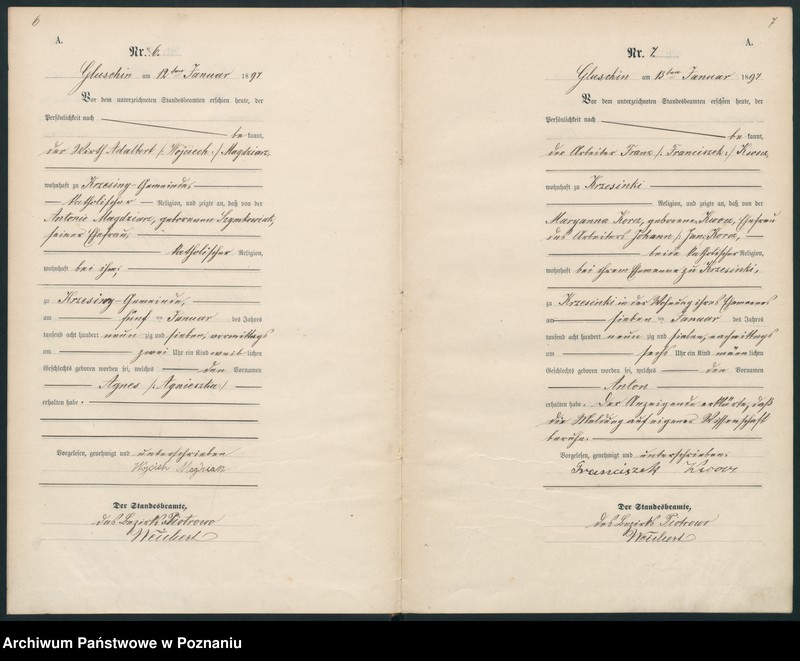 6
A.
Nr. 6.
Gluschin am 12ten Januar 1897
Vor dem unterzeichneten Standesbeamten erschien heute, der
Persönlichkeit nach
be kannt,
der Wirth Adalbert /: Wojciech :/ Magdziarz,
wohnhaft zu Krzesing-Gemeinde,
katholischer Religion, und zeigte an, daß von der
Antonie Magdziarz, geborenen Szymkowiak,
seiner Ehefrau,
katholischer Religion,
wohnhaft bei ihm,
zu Krzesing-Gemeinde,
am fünf ten Januar des Jahres
tausend acht hundert neun zig und sieben, vormittags
um zwei Uhr ein Kind weib lichen
Geschlechts geboren worden sei, welches den Vornamen
Agnes /: Agnieszka :/
erhalten habe.
Vorgelesen, genehmigt und unterschrieben
Wojciech Magdziarz
Der Standesbeamte,
des Bezirks Piotrowo
Weichert
7
A.
Nr. 7.
Gluschin am 13ten Januar 1897
Vor dem unterzeichneten Standesbeamten erschien heute, der
Persönlichkeit nach
be kannt,
der Arbeiter Franz /: Franciszek :/
wohnhaft zu Krzesinki
Religion, und zeigte an, daß von der
Maryanna Korcz, geborene Ehefrau
des Arbeiters Johann /: Jan :/ Korcz,
beide katholischer Religion,
wohnhaft bei ihrem Ehemanne zu Krzesinki,
zu Krzesinki in der Wohnung ihres Ehemannes
am sieben ten Januar des Jahres
tausend acht hundert neun zig und sieben, nachmittags
um sechs Uhr ein Kind männ lichen
Geschlechts geboren worden sei, welches den Vornamen
Anton
erhalten habe. Der Anzeigende erklärte, daß
die Meldung auf eigener Wissenschaft
beruhe.
Vorgelesen, genehmigt und unterschrieben
Franciszek
Der Standesbeamte,
des Bezirks Piotrowo
Weichert
Archiwum Państwowe w Poznaniu